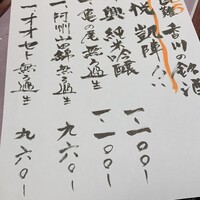 香川の銘酒
悦 凱陣!!
興 純米吟醸 一、一〇〇ー
一、亀の尾 無ろ過生 一、一〇〇ー
一、阿州山田錦 無ろ過生 九六〇ー
一、オオセト 無ろ過生 九六〇ー